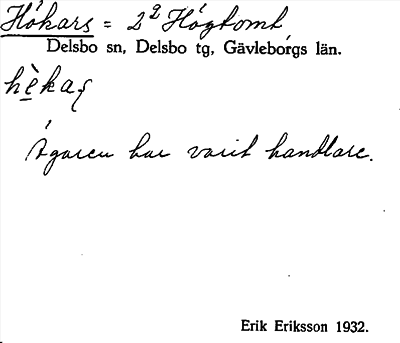 Hókars = 2ª Högtomt,
Delsbo sn, Delsbo tg, Gävleborgs län.
hèkaʂ
Ägaren har varit handlare.
Erik Eriksson 1932.